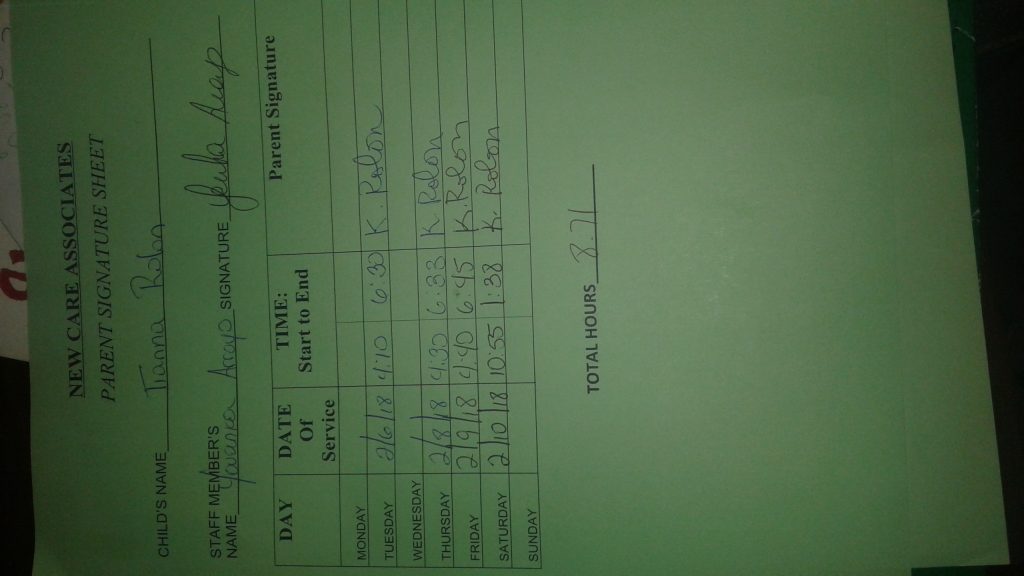 NEW CARE ASSOCIATES
PARENT SIGNATURE SHEET
CHILD'S NAME Tianna Rolon
STAFF MEMBER'S
NAME Arroyo SIGNATURE
DAY DATE Of Service TIME: Start to End Parent Signature
MONDAY
TUESDAY 2/6/18 4:10 6:30 K. Rolon
WEDNESDAY
THURSDAY 2/8/18 4:30 6:33 K Rolon
FRIDAY 2/9/18 4:40 6:45 K. Rolon
SATURDAY 2/10/18 10:55 1:38 K. Rolon
SUNDAY
TOTAL HOURS 8.71